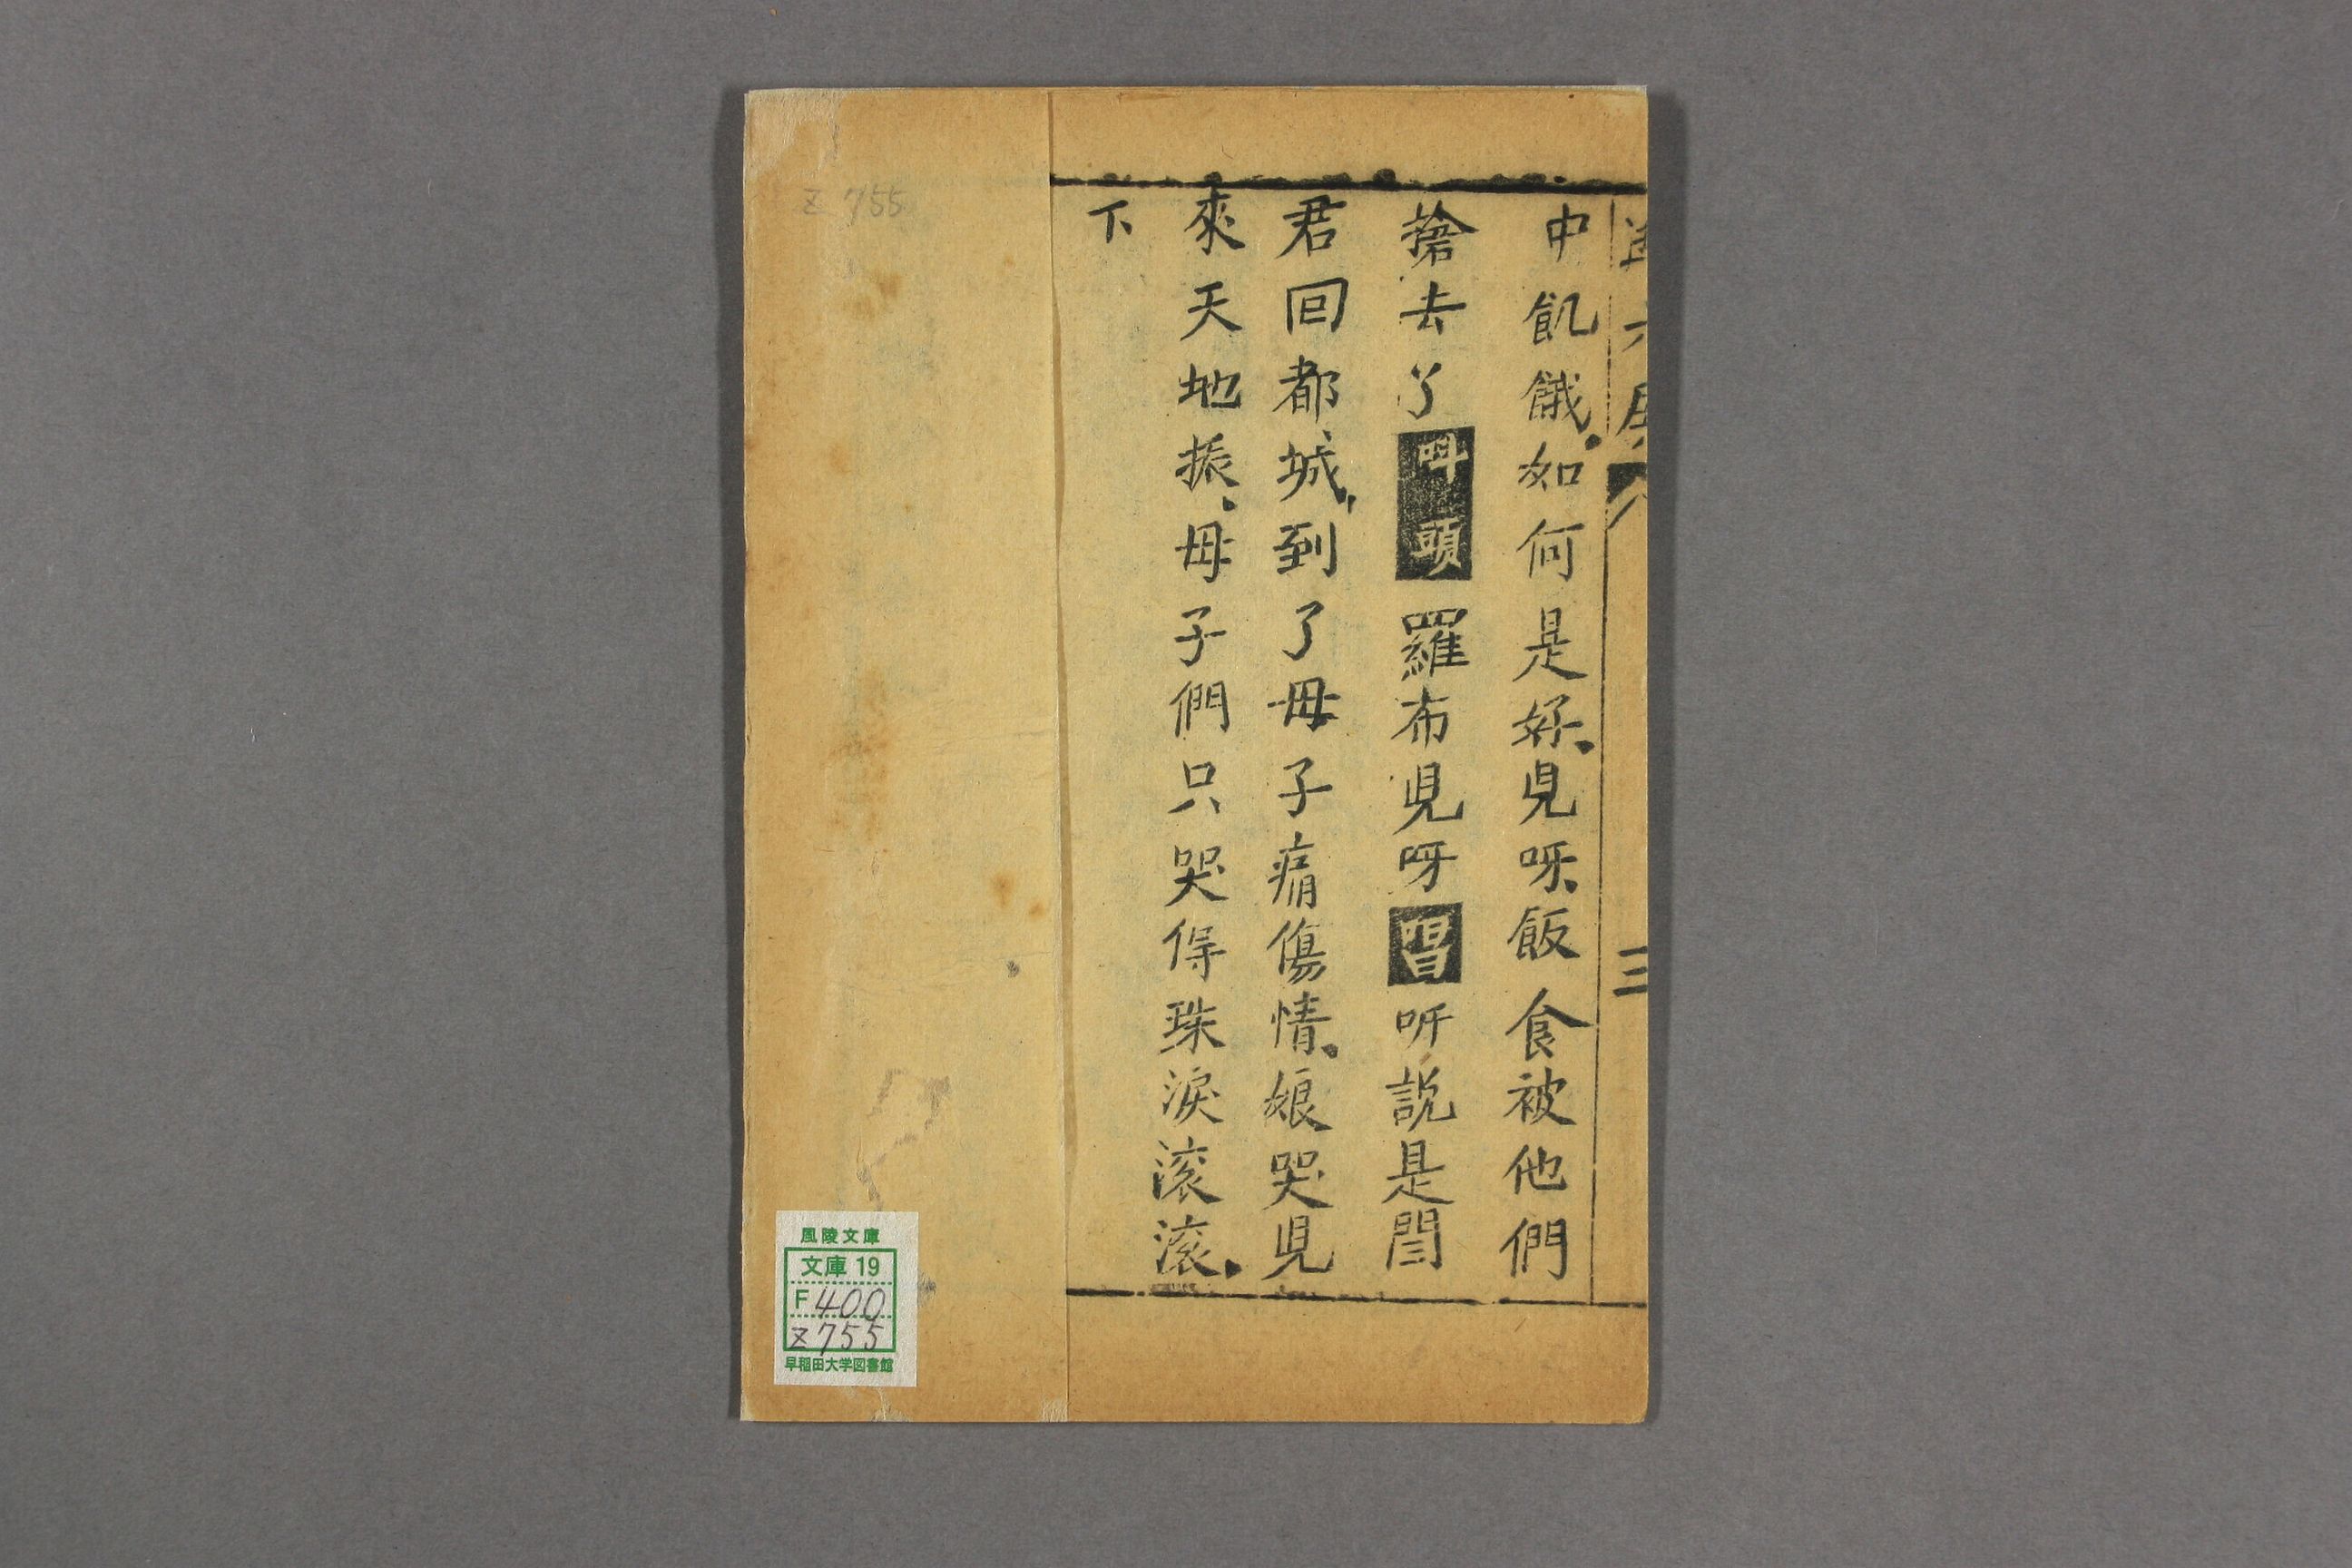 三
中飢餓.如何是好.見呀.飯食被他們
搶去了叫頭羅布見呀唱听說是閆
君回都城,到了母子痛傷情.娘哭見
來天地振.母子們只哭得珠淚滾滾.
下
Z 755
風陵文庫
文庫 19
F 400
Z 755
早稲田大学図書館